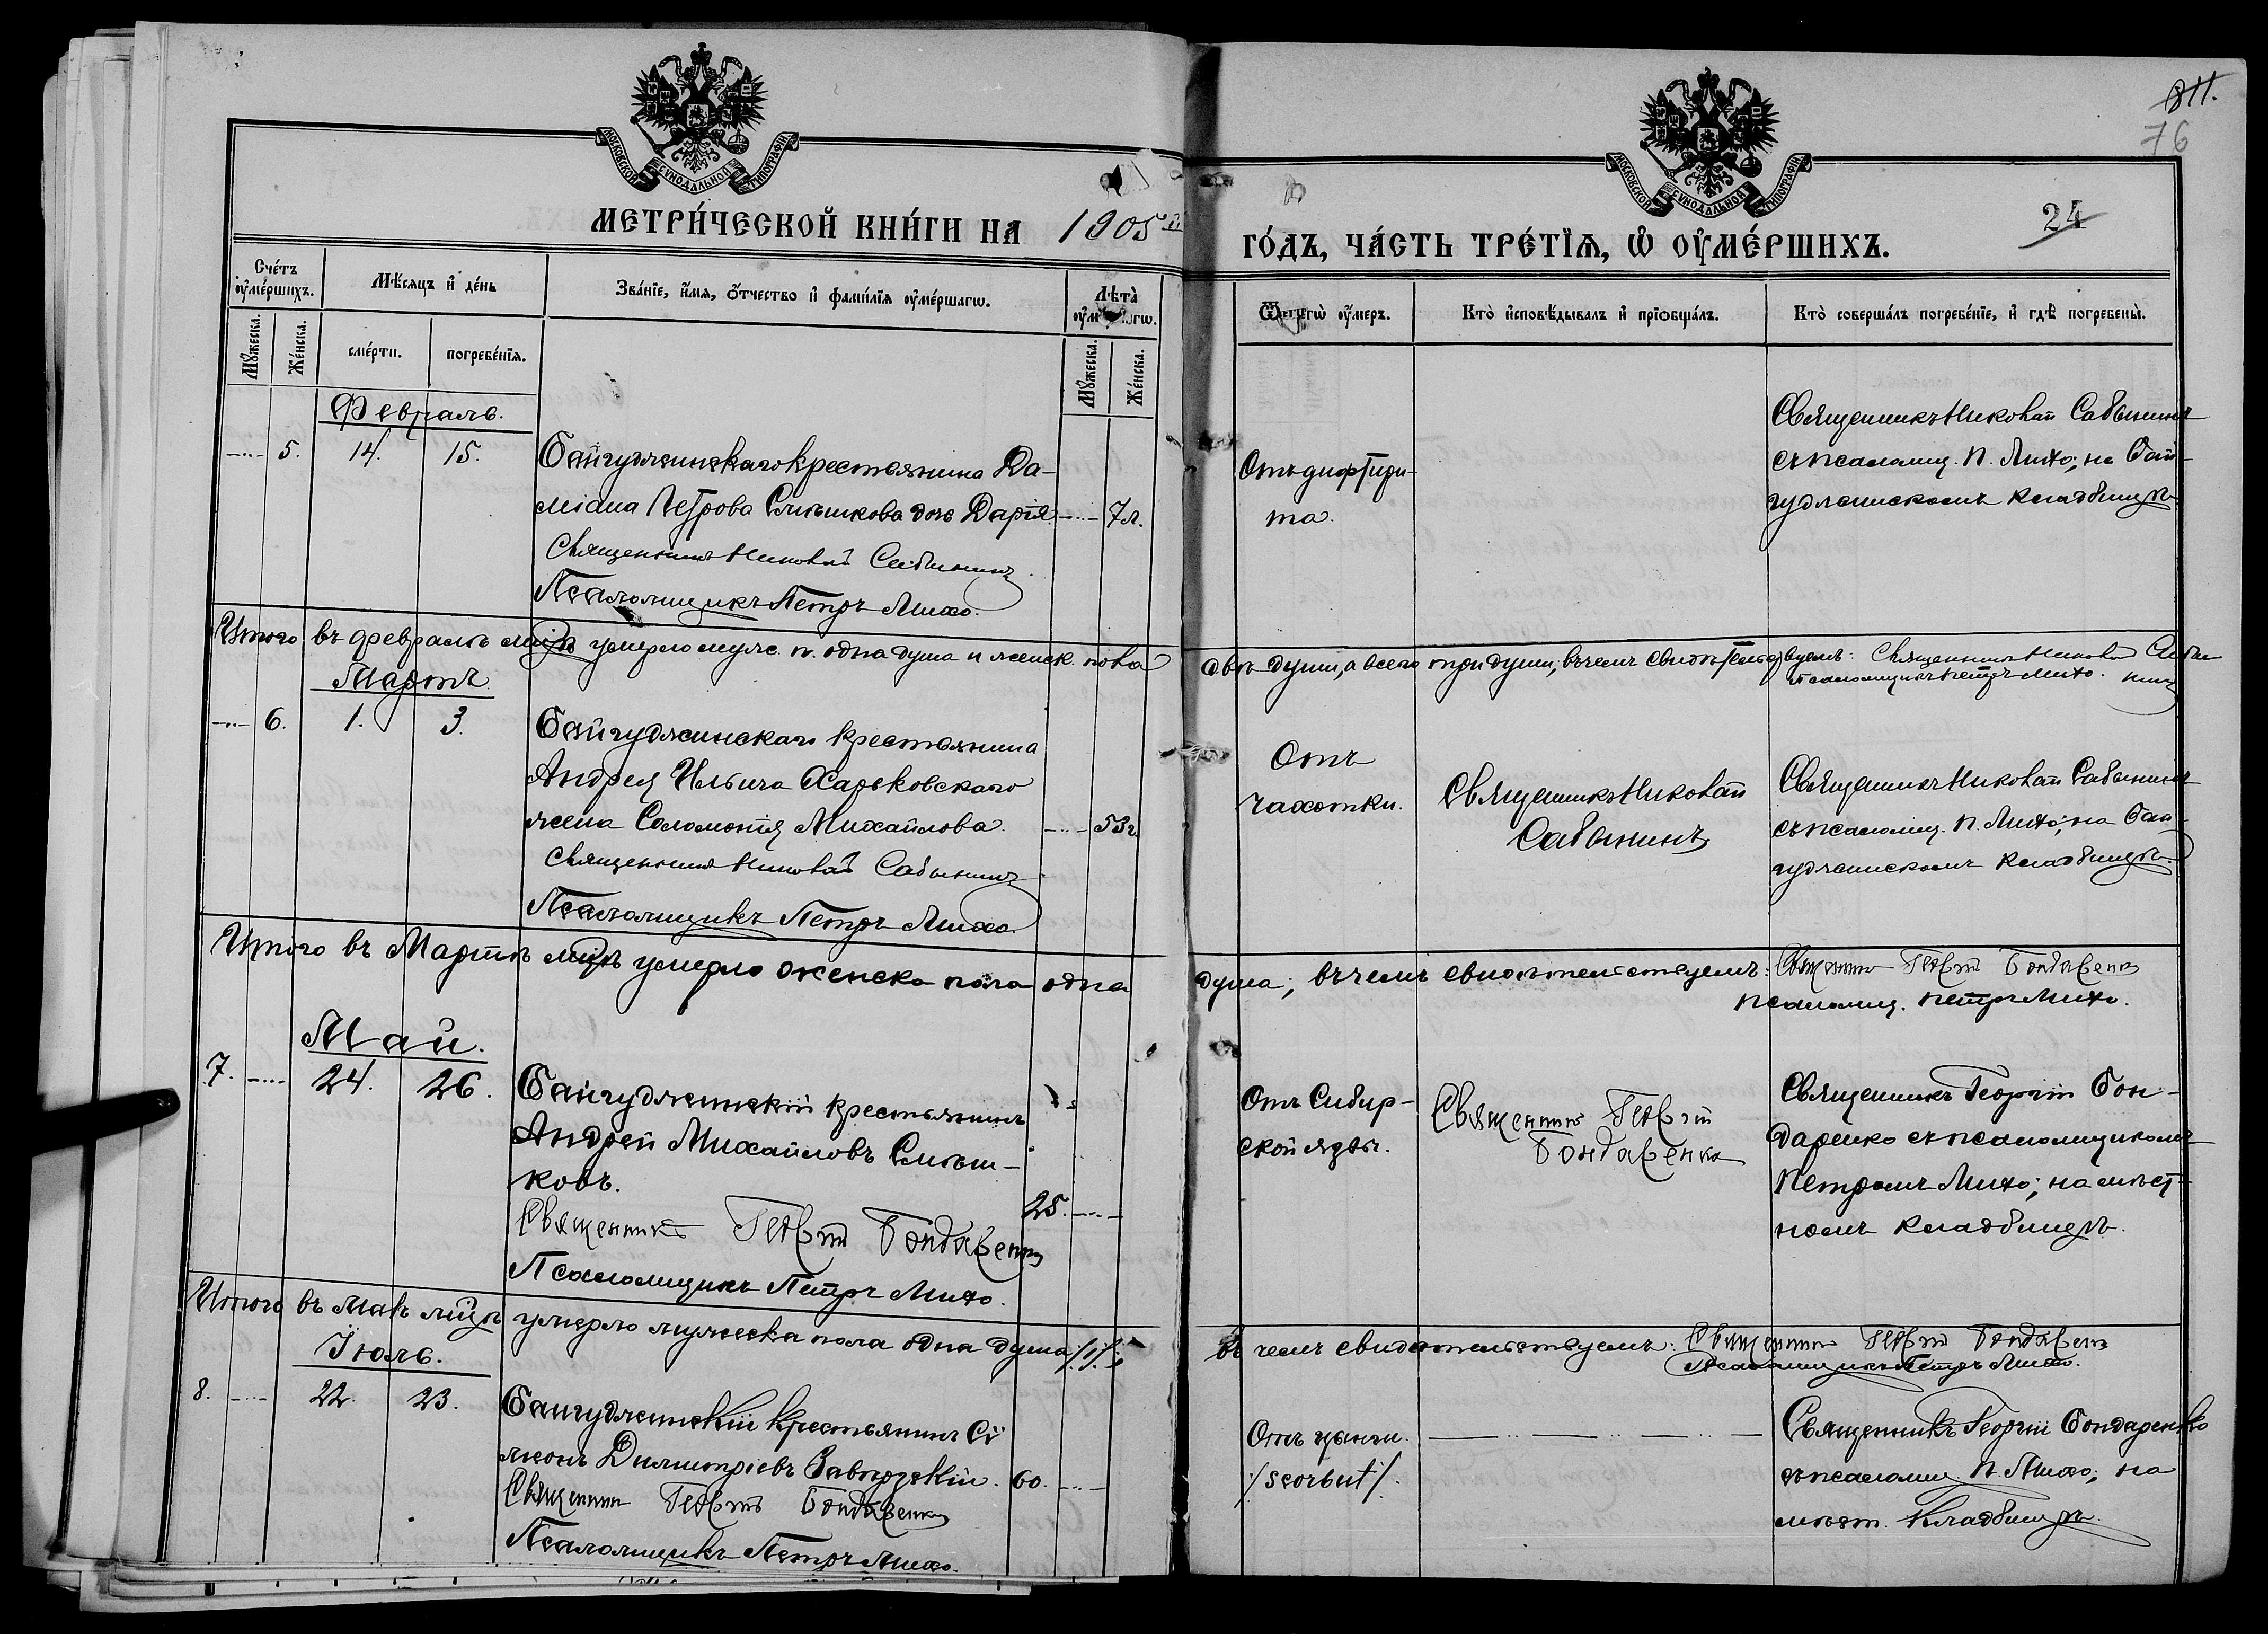 811.
76
24
МОСКОВСКОЙ СѴНОДАЛЬНОЙ ТИПОГРАФІИ
МОСКОВСКОЙ СѴНОДАЛЬНОЙ ТИПОГРАФІИ
МЕТРИ́ЧЕСКОЙ КНИ́ГИ НА 1905й
ГО́ДЪ, ЧА́СТЬ ТРЕ́ТЇѦ, Ѽ ОУ҆МЕ́РШИХЪ.
Сче́тъ оу҆ме́ршихъ.
Мѣ́сяцъ и҆ де́нь
Зва́нїе, и҆́мѧ, ѻ҆́тчество и҆ фами́лїѧ оу҆ме́ршагѡ.
Лѣта̀
Мꙋ́жеска.
Же́нска.
сме́рти.
погребе́нїѧ.
Мꙋ́жеска.
Же́нска.
Ѿ чегѡ̀ оу҆́меръ.
Кто̀ и҆сповѣ́дывалъ и҆ прїѻбща́лъ.
Кто̀ соверша́лъ погребе́нїе, и҆ гдѣ̀ погребены̀.
Февраль.
5. 14. 15.
Байгуджинскаго крестьянина Да-
міана Петрова Смышкова дочь Дарія 7 л.
Священникъ Николай Сабынинъ
Псаломщикъ Петръ Михо.
Отъ дифтери-
та.
Священникъ Николай Сабынинъ
съ псаломщ. П. Михо; на Бай-
гуджинскомъ кладбищѣ.
Итого въ февралѣ мцѣ умерло муж. п. одна душа и женск. пола
двѣ души, а всего три души, въ чемъ свидѣтельствуемъ: Священникъ Николай Сабы
Псаломщикъ Петръ Михо. нинъ
Мартъ.
6. 1. 3.
Байгуджинскаго крестьянина
Андрея Ильича Харьковскаго
жена Соломонія Михайлова. 53 г.
Священникъ Николай Сабынинъ
Псаломщикъ Петръ Михо.
Отъ
чахотки.
Священникъ Николай
Сабынинъ
Священникъ Николай Сабынинъ
съ псаломщ. П. Михо; на Бай-
гуджинскомъ кладбищѣ.
Итого въ Мартѣ мцѣ умерло женска пола одна
душа; въ чемъ свидѣтельствуемъ: Священникъ Георгій Бондаренко
псаломщ. Петръ Михо.
Май.
7. 24. 26.
Байгуджинскій крестьянинъ
Андрей Михайловъ Смыш-
ковъ. 25.
Священникъ Георгій Бондаренко
Псаломщикъ Петръ Михо.
Отъ Сибир-
ской язвы.
Священникъ Георгій
Бондаренко
Священникъ Георгій Бон-
даренко съ псаломщикомъ
Петромъ Михо; на мѣст-
номъ кладбищѣ.
Итого въ маѣ мцѣ умерло мужеска пола одна душа /1/
въ чемъ свидѣтельствуемъ: Священникъ Георгій Бондаренко
Псаломщикъ Петръ Михо.
Іюль.
8. 22. 23.
Байгуджинскій крестьянинъ Сі
меонъ Димитріевъ Завгрдзскій. 60.
Священникъ Георгій Бондаренко
Псаломщикъ Петръ Михо.
Отъ цынги.
/scorbut/.
Священникъ Георгій Бондаренко
съ псаломщ. П. Михо; на
мѣст. кладбищѣ.